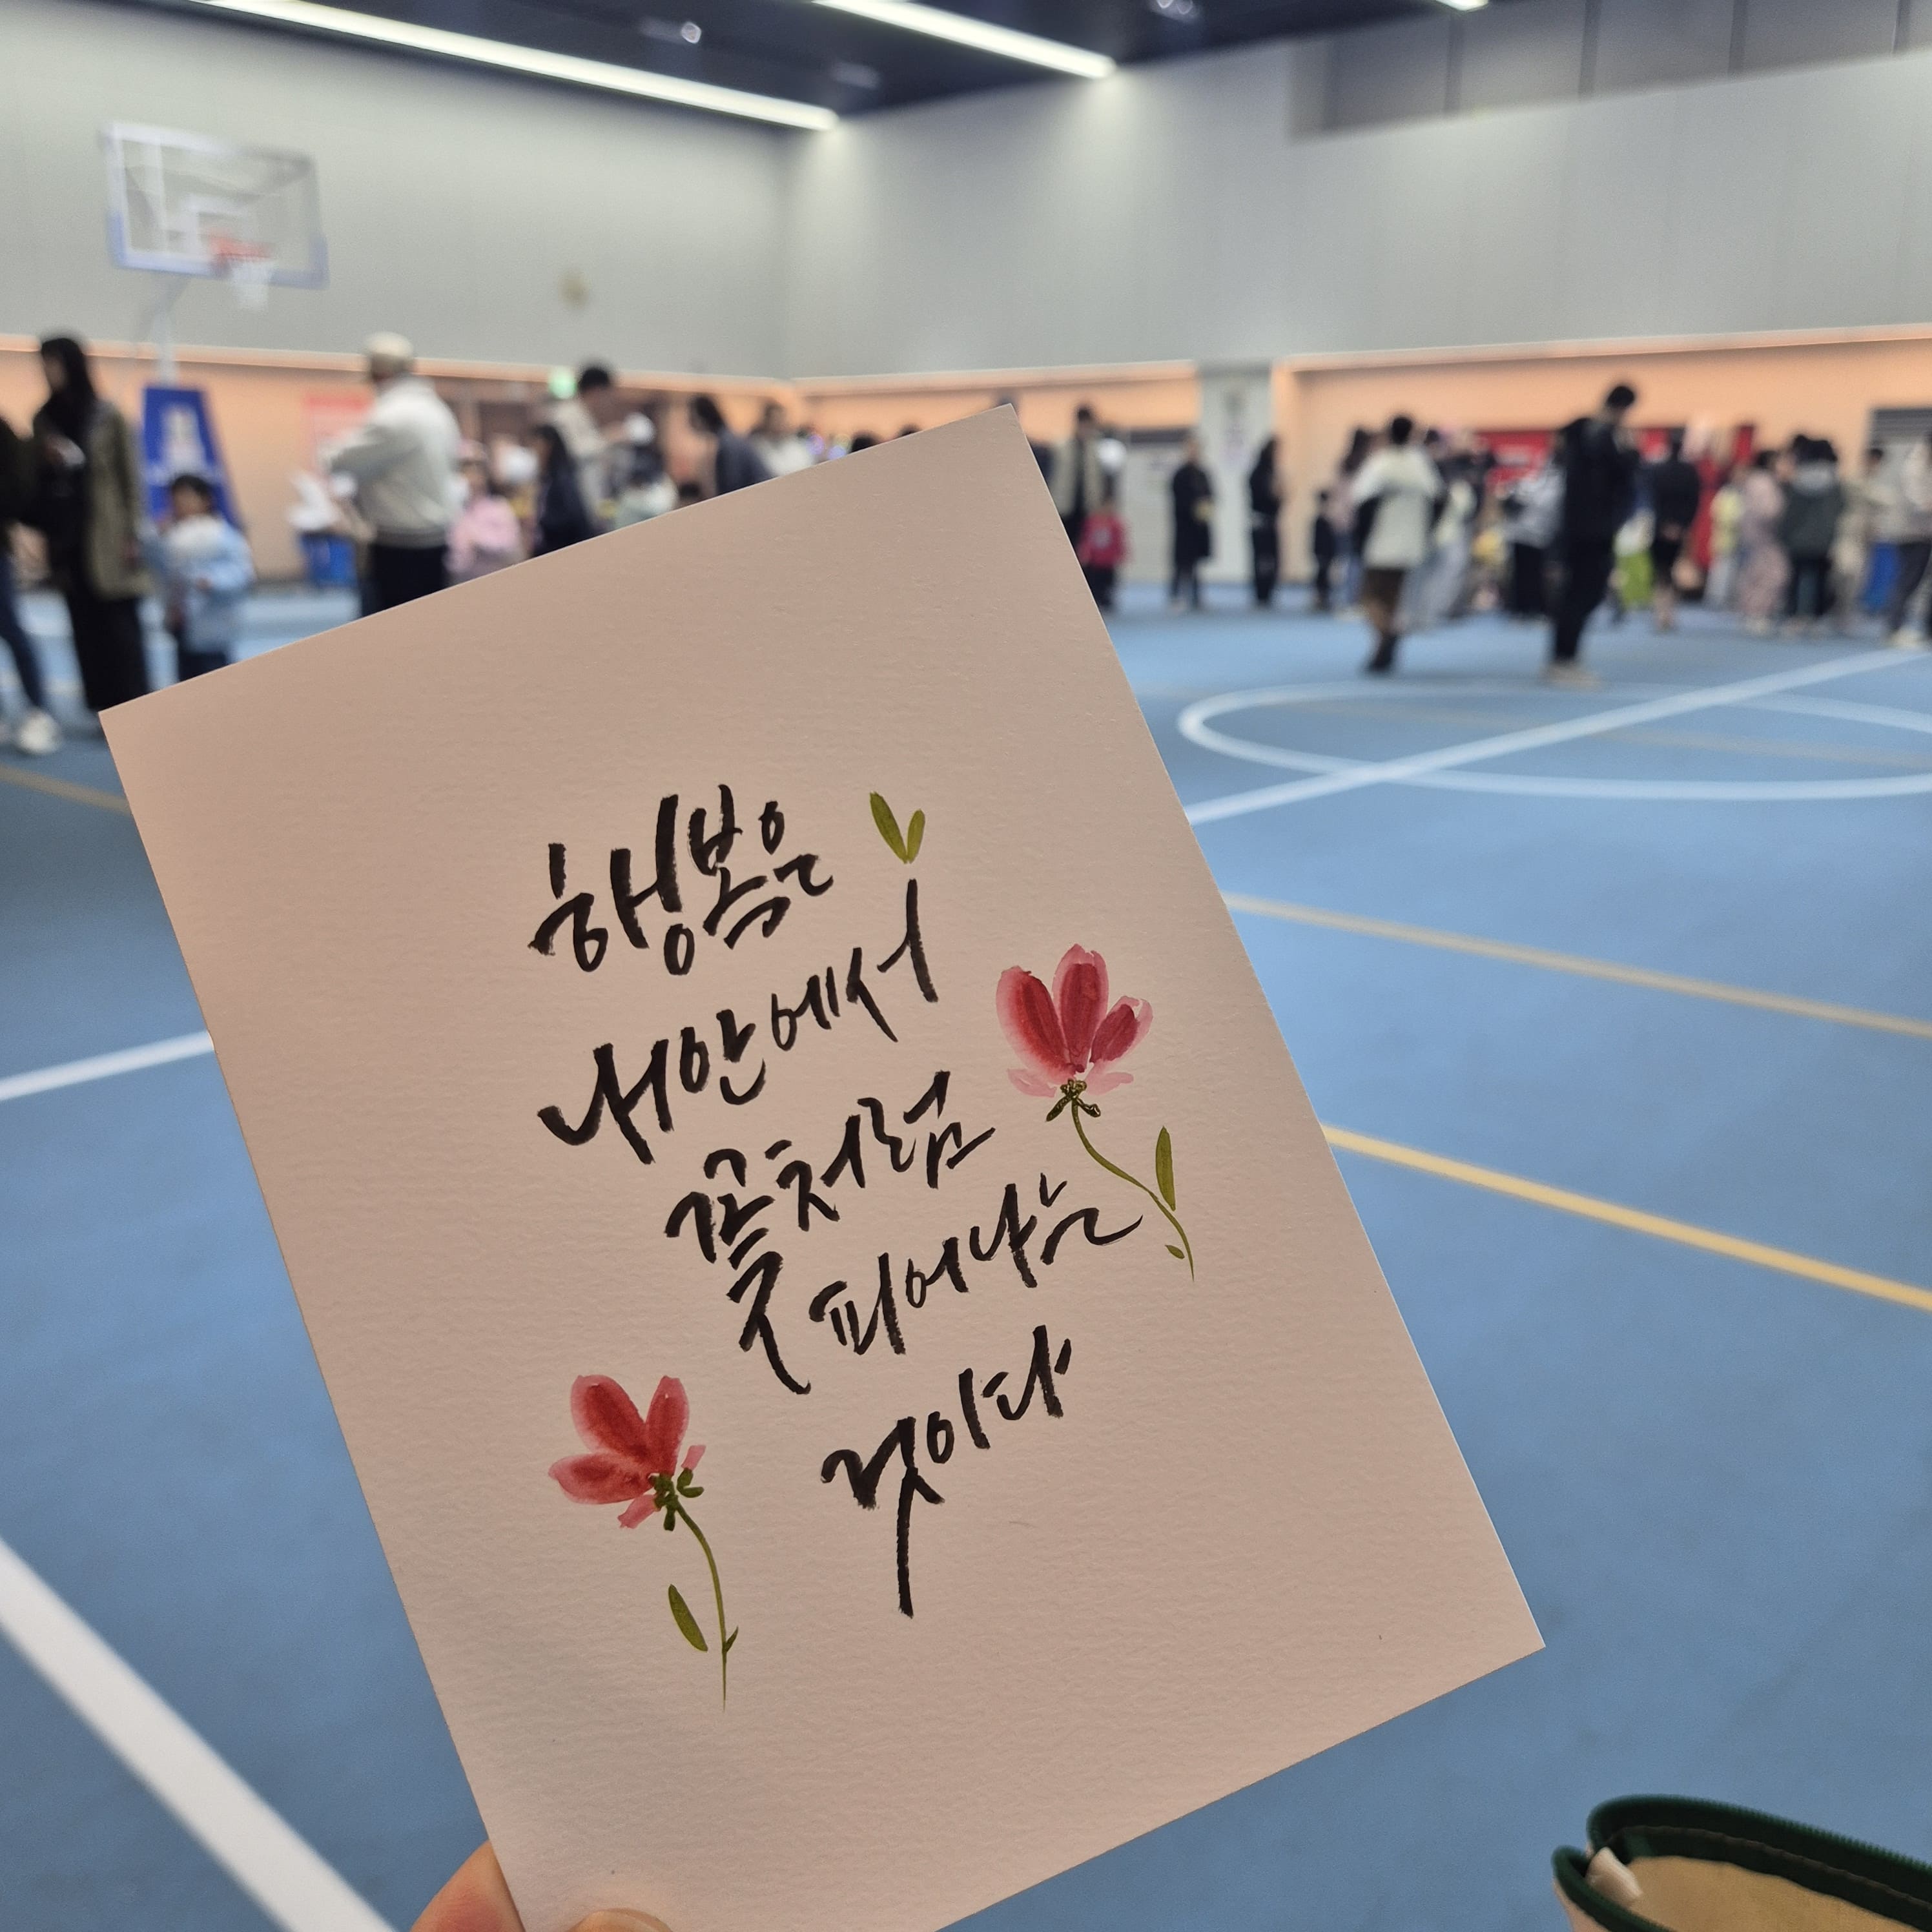 행복은
내안에서
꽃처럼
피어나는
것이다